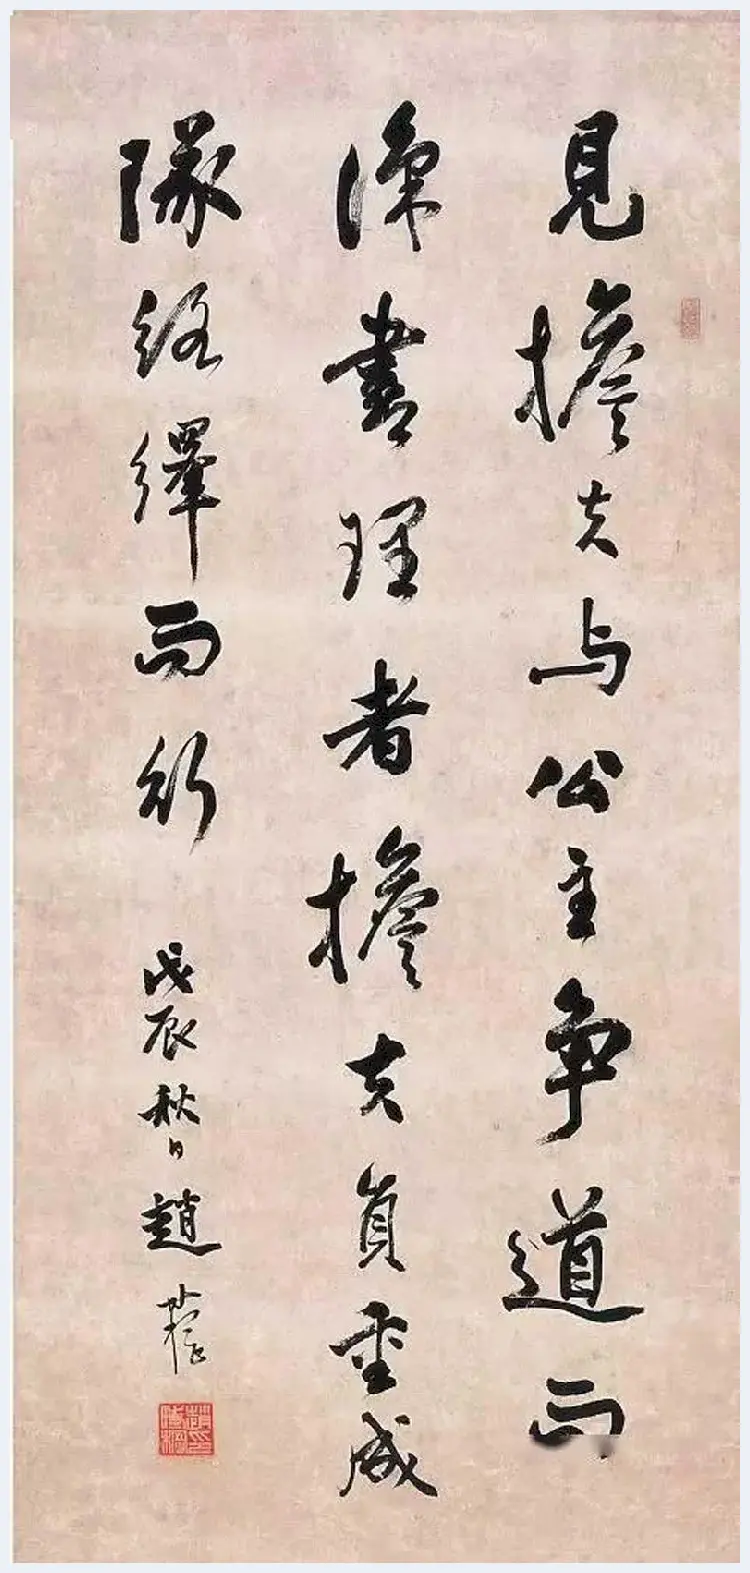 見擔夫与公主争道而
書理者擔夫負重成
隊絡繹而行 戊辰秋日趙